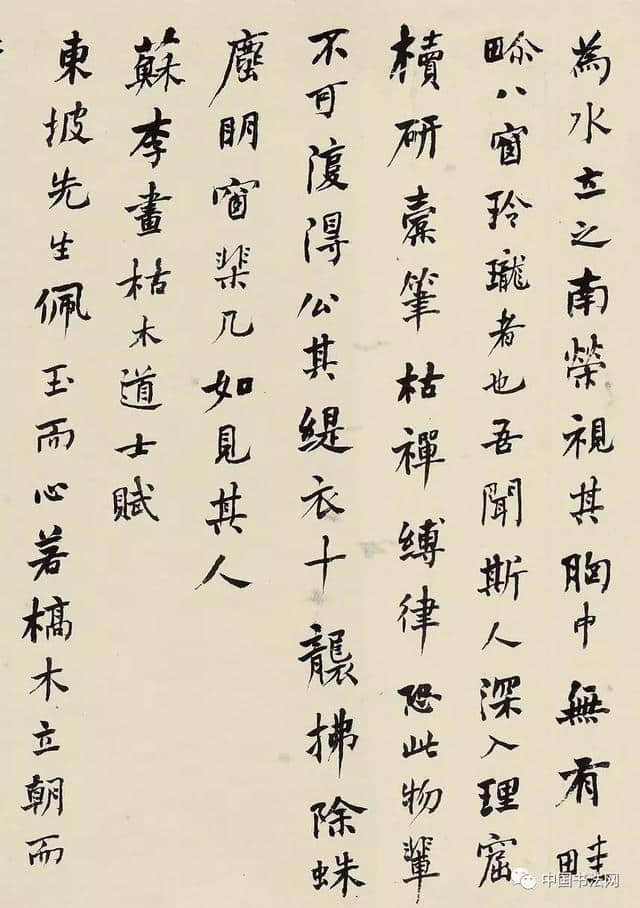 為水立之南榮視其胸中無有畦
畛八窗玲瓏者也吾聞斯人深入理窟
櫝研囊筆枯禪縛律恐此物輩
不可復得公其緹衣十襲拂除蛛
塵明窗棐几如見其人
蘇李畫枯木道士賦
東坡先生佩玉而心若槁木立朝而
中国书法网